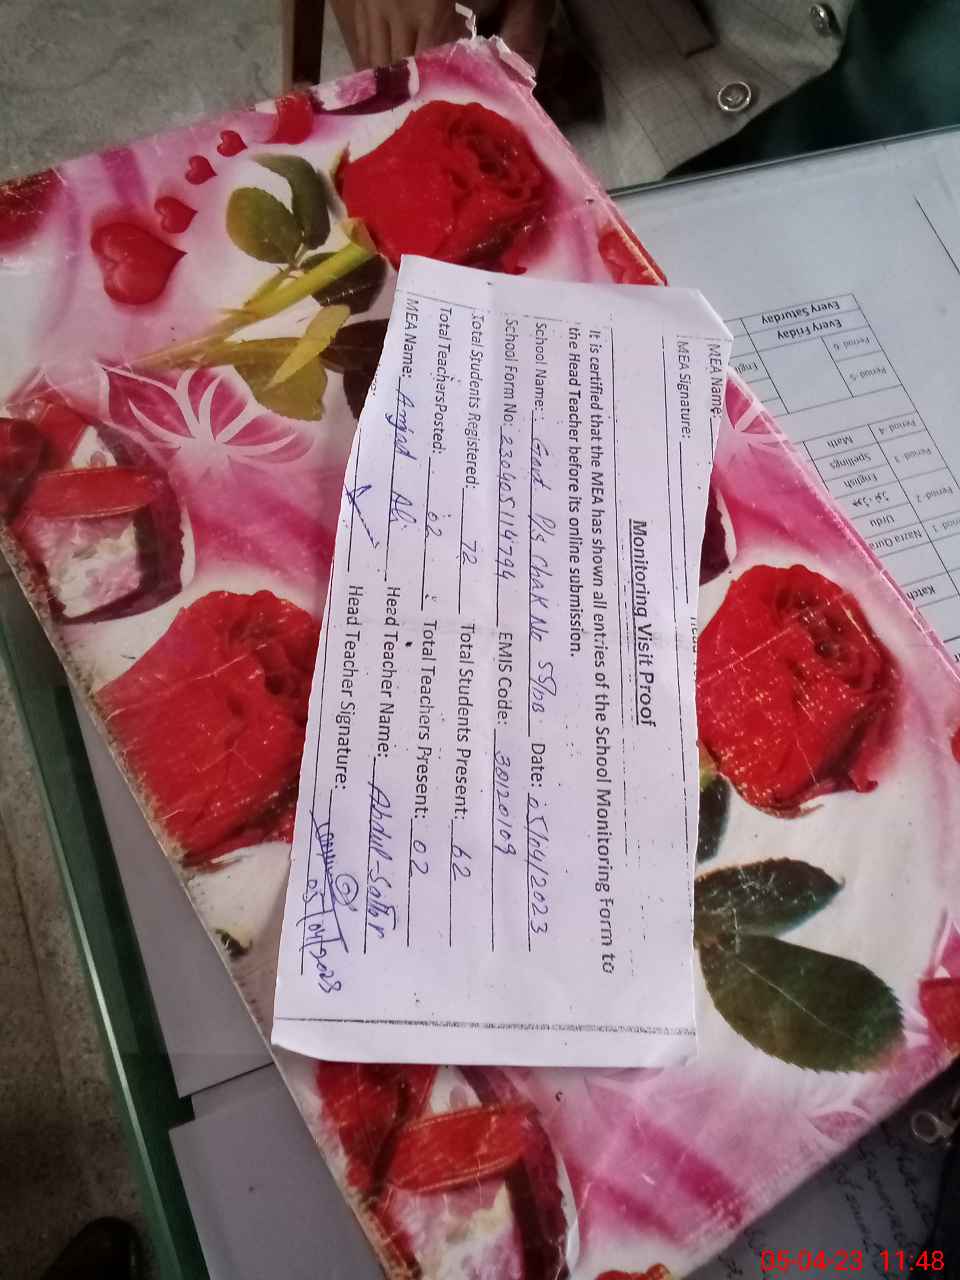 MEA Name:
MEA Signature:
Monitoring Visit Proof
It is certified that the MEA has shown all entries of the School Monitoring Form to
the Head Teacher before its online submission.
School Name: Govt P/S Chak No 55/DB Date: 05/04/2023
School Form No: 230405114794 EMIS Code: 38120109
Total Students Registered: 72 Total Students Present: 62
Total TeachersPosted: 02 Total Teachers Present: 02
MEA Name: Amjad Ali Head Teacher Name: Abdul-Sattar
Head Teacher Signature:
05/04/2023
Every Saturday
Every Friday
Period-6
Period-5
Period-4
Period-3
Period-2
Math
Spellings
English
جوڑ توڑ
Urdu
Nazra Qura
Katch
05-04-23 11:48